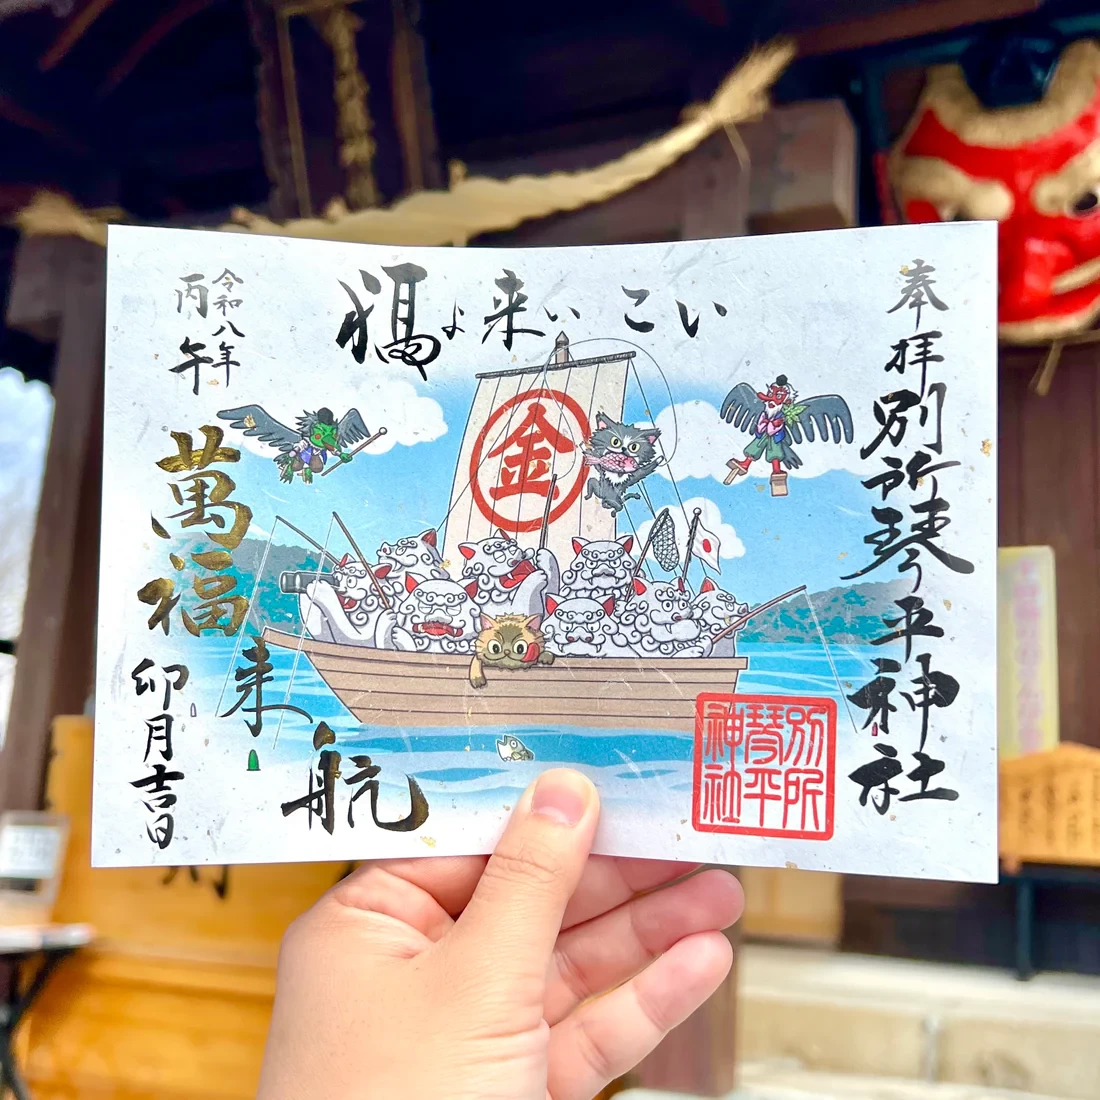 奉拝
別所琴平神社
福よ来いこいこい
金
令和八年
丙午
萬福
来航
卯月吉日
別所
琴平
神社